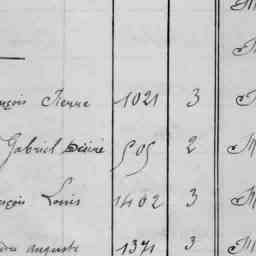 nçois Pierre 1021 3
Gabriel Désiré 505 2 M
nçois Louis 1402 3 M
dre auguste 1371 3 M